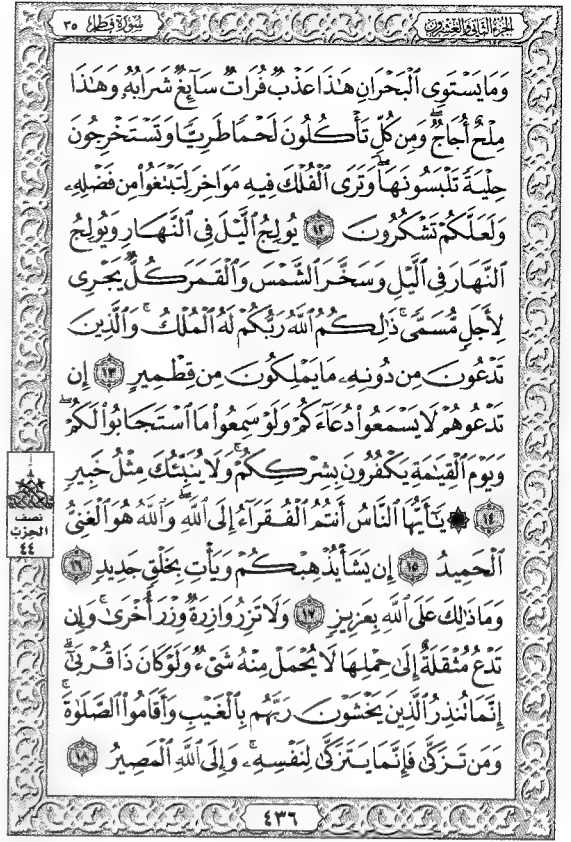 سُورَةُ فَطِرٍ ٣٥
الجُزْءُ الثَّانِي وَالعِشْرُونَ
وَمَا يَسْتَوِى ٱلْبَحْرَانِ هَٰذَا عَذْبٌ فُرَاتٌ سَآئِغٌ شَرَابُهُۥ وَهَٰذَا
مِلْحٌ أُجَاجٌ ۖ وَمِن كُلٍّ تَأْكُلُونَ لَحْمًا طَرِيًّا وَتَسْتَخْرِجُونَ
حِلْيَةً تَلْبَسُونَهَا ۖ وَتَرَى ٱلْفُلْكَ فِيهِ مَوَاخِرَ لِتَبْتَغُوا۟ مِن فَضْلِهِۦ
وَلَعَلَّكُمْ تَشْكُرُونَ ١٢ يُولِجُ ٱلَّيْلَ فِى ٱلنَّهَارِ وَيُولِجُ
ٱلنَّهَارَ فِى ٱلَّيْلِ وَسَخَّرَ ٱلشَّمْسَ وَٱلْقَمَرَ كُلٌّ يَجْرِى
لِأَجَلٍ مُّسَمًّى ۚ ذَٰلِكُمُ ٱللَّهُ رَبُّكُمْ لَهُ ٱلْمُلْكُ ۚ وَٱلَّذِينَ
تَدْعُونَ مِن دُونِهِۦ مَا يَمْلِكُونَ مِن قِطْمِيرٍ ١٣ إِن
تَدْعُوهُمْ لَا يَسْمَعُوا۟ دُعَآءَكُمْ وَلَوْ سَمِعُوا۟ مَا ٱسْتَجَابُوا۟ لَكُمْ ۖ
وَيَوْمَ ٱلْقِيَٰمَةِ يَكْفُرُونَ بِشِرْكِكُمْ ۚ وَلَا يُنَبِّئُكَ مِثْلُ خَبِيرٍ
١٤ ۞ يَٰٓأَيُّهَا ٱلنَّاسُ أَنتُمُ ٱلْفُقَرَآءُ إِلَى ٱللَّهِ ۖ وَٱللَّهُ هُوَ ٱلْغَنِىُّ
ٱلْحَمِيدُ ١٥ إِن يَشَأْ يُذْهِبْكُمْ وَيَأْتِ بِخَلْقٍ جَدِيدٍ ١٦
وَمَا ذَٰلِكَ عَلَى ٱللَّهِ بِعَزِيزٍ ١٧ وَلَا تَزِرُ وَازِرَةٌ وِزْرَ أُخْرَىٰ ۚ وَإِن
تَدْعُ مُثْقَلَةٌ إِلَىٰ حِمْلِهَا لَا يُحْمَلْ مِنْهُ شَىْءٌ وَلَوْ كَانَ ذَا قُرْبَىٰٓ ۗ
إِنَّمَا تُنذِرُ ٱلَّذِينَ يَخْشَوْنَ رَبَّهُم بِٱلْغَيْبِ وَأَقَامُوا۟ ٱلصَّلَوٰةَ ۚ
وَمَن تَزَكَّىٰ فَإِنَّمَا يَتَزَكَّىٰ لِنَفْسِهِۦ ۚ وَإِلَى ٱللَّهِ ٱلْمَصِيرُ ١٨
نصف
الحزب
٤٤
٤٣٦